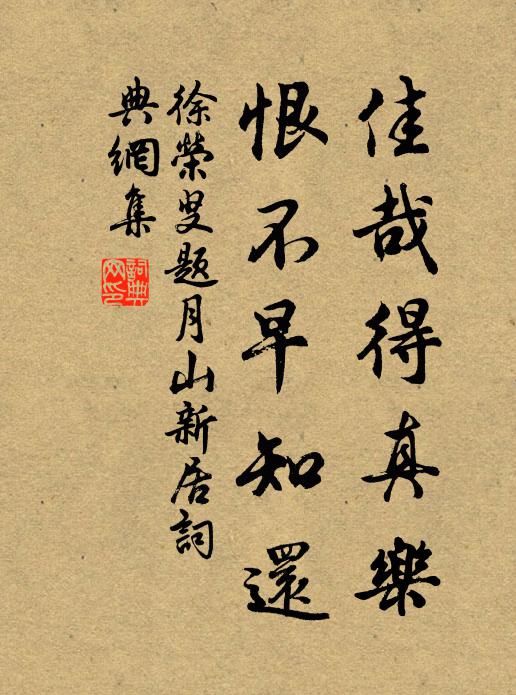 佳哉得真樂
恨不早知還
徐榮叟題月山新居詞
典網集
詞典網印